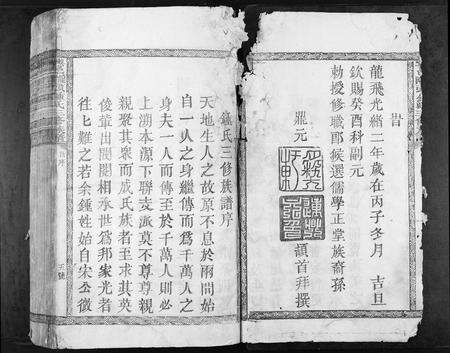 昔
龍飛光緒二年歲在丙子冬月　吉旦
欽賜癸酉科副元
勅授修職郎候選儒學正堂族裔孫
鼎元
頓首拜撰
鍾氏三修族譜序
天地生人之故原不息於兩間始
自一人之身繼傳而爲千萬人之
身夫一人而傳至於千萬人則必
上溯本源下聯支派莫不尊尊親
親聚其衆而成氏族者至求其英
俊輩出閥閱承世爲邦家光者
往往難之若余鍾姓始自宋公徵